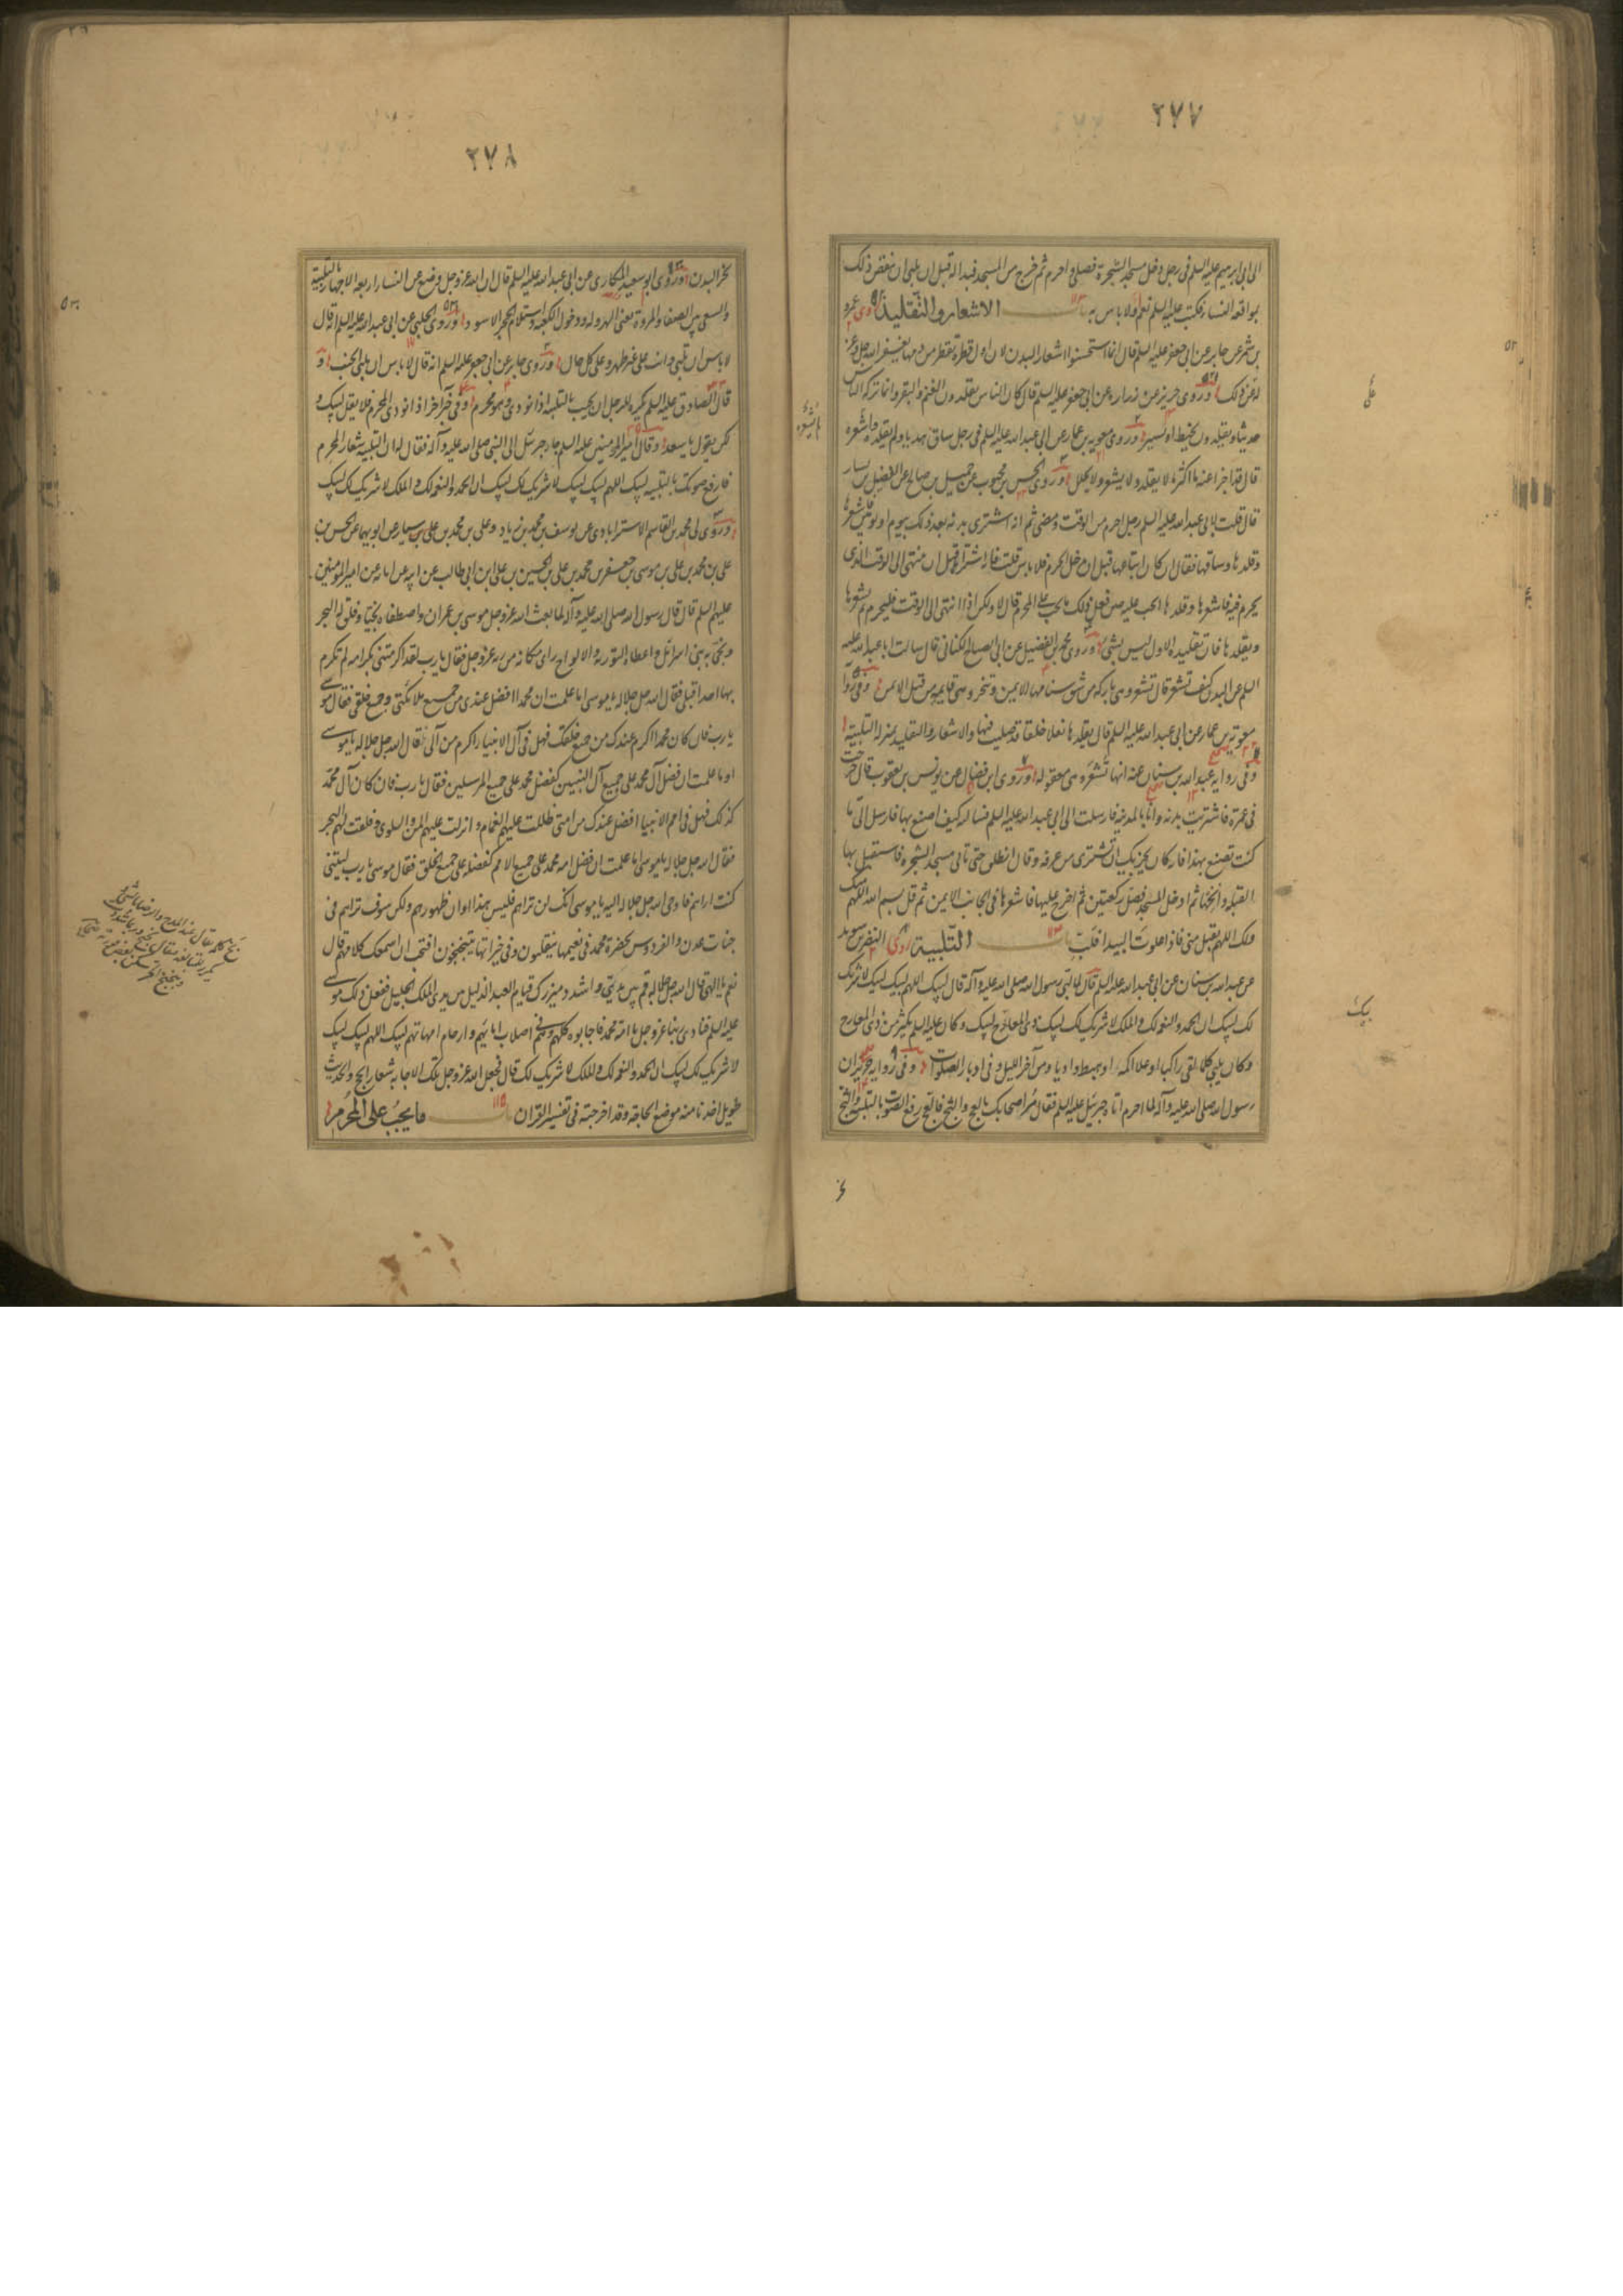 ٢٧٧
الى ابى ابرهيم عليه السلم فى رجل دخل مسجد الشجرة فصلى واحرم ثم خرج من المسجد فبدا له قبل ان يلبى ان ينقض ذلك
بمواقعة النساء فكتب عليه السلم نعم ولا باس به باب الاشعار والتقليد روى عمرو
بن شمر عن جابر عن ابى جعفر عليه السلم قال انما استحسنوا اشعار البدن لان اول قطرة تقطر من دمها يغفر الله عز وجل
له عن ذلك وروى حريز عن زرارة عن ابى جعفر عليه السلم قال كان الناس يقلدون الغنم والبقر وانما تركه الناس
حديثا ويقلدون بخيط او سير وروى معوية بن عمار عن ابى عبد الله عليه السلم فى رجل ساق هديا ولم يقلده ولم يشعره
قال قد اجزأ عنه ما اكثر ما لا يقلد ولا يشعر ولا يجلل وروى الحسن بن محبوب عن جميل بن صالح عن الفضيل بن يسار
قال قلت لابى عبد الله عليه السلم رجل احرم من الوقت ومضى ثم انه اشترى بدنة بعد ذلك بيوم او يومين فاشعرها
وقلدها وساقها فقال ان كان ابتاعها قبل ان يدخل الحرم فلا باس قلت فانه اشتراها قبل ان ينتهى الى الوقت الذى
يحرم فيه فاشعرها وقلدها ايجب عليه حين فعل ذلك ما يجب على المحرم قال لا ولكن اذا انتهى الى الوقت فليحرم ثم يشعرها
ويقلدها فان تقليده الاول ليس بشئ وروى محمد بن الفضيل عن ابى الصباح الكنانى قال سالت ابا عبد الله عليه
السلم عن البدن كيف تشعر قال تشعر وهى باركة من شق سنامها الايمن وتنحر وهى قايمة من قبل الايمن وفى رواية
معوية بن عمار عن ابى عبد الله عليه السلم قال يقلدها نعلا خلقا قد صليت فيها والاشعار والتقليد بمنزلة التلبية
وفى رواية عبد الله بن سنان عنه انها تشعر وهى معقولة وروى ابن فضال عن يونس بن يعقوب قال خرجت
فى عمرة فاشتريت بدنة وانا بالمدينة فارسلت الى ابى عبد الله عليه السلم فسالته كيف اصنع بها فارسل الى ما
كنت تصنع بهذا فانه كان يجزيك ان تشترى من عرفة وقال انطلق حتى تاتى مسجد الشجرة فاستقبل بها
القبلة وانخها ثم ادخل المسجد فصل ركعتين ثم اخرج عليها فاشعرها فى الجانب الايمن ثم قل بسم الله اللهم منك
ولك اللهم تقبل منى فاذا علوت البيداء فلب باب التلبية روى النضر بن سويد
عن عبد الله بن سنان عن ابى عبد الله عليه السلم قال لما لبى رسول الله صلى الله عليه وآله قال لبيك اللهم لبيك لبيك لا شريك
لك لبيك ان الحمد والنعمة لك والملك لا شريك لك لبيك ذى المعارج لبيك وكان عليه السلم يكثر من ذى المعارج
وكان يلبى كلما لقى راكبا او علا اكمة او هبط واديا ومن آخر الليل وفى ادبار الصلوات وفى رواية حريز ان
رسول الله صلى الله عليه وآله لما احرم اتاه جبرئيل عليه السلم فقال مر اصحابك بالعج والثج فالعج رفع الصوت بالتلبية والثج
٢٧٨
نحر البدن وروى ابو سعيد المكارى عن ابى عبد الله عليه السلم قال ان الله عز وجل وضع عن النساء اربعا الاجهار بالتلبية
والسعى بين الصفا والمروة يعنى الهرولة ودخول الكعبة واستلام الحجر الاسود وروى الحلبى عن ابى عبد الله عليه السلم انه قال
لا باس ان تلبى وانت على غير طهر وعلى كل حال وروى جابر عن ابى جعفر عليه السلم انه قال لا باس ان يلبى الجنب و
قال الصادق عليه السلم يكره للرجل ان يجيب بالتلبية اذا نودى وهو محرم وفى خبر آخر اذا نودى المحرم فلا يقل لبيك و
لكن يقول يا سعد وقال امير المؤمنين عليه السلم جاء جبرئيل الى النبى صلى الله عليه وآله فقال له ان التلبية شعار المحرم
فارفع صوتك بالتلبية لبيك اللهم لبيك لبيك لا شريك لك لبيك ان الحمد والنعمة لك والملك لا شريك لك لبيك
وروى لى محمد بن القاسم الاسترابادى عن يوسف بن محمد بن زياد وعلى بن محمد بن سيار عن ابويهما عن الحسن بن
على بن محمد بن على بن موسى بن جعفر بن محمد بن على بن الحسين بن على ابن ابى طالب عن ابيه عن ابائه عن امير المومنين
عليهم السلم قال قال رسول الله صلى الله عليه وآله لما بعث الله عز وجل موسى بن عمران واصطفاه نجيا وفلق له البحر
ونجى بنى اسرائيل واعطاه التورية والالواح راى مكانه من ربه عز وجل فقال يا رب لقد اكرمتنى بكرامة لم تكرم
بها احدا قبلى فقال الله جل جلاله يا موسى اما علمت ان محمدا افضل عندى من جميع ملائكتى وجميع خلقى فقال موسى
يا رب فان كان محمد اكرم عندك من جميع خلقك فهل فى آل الانبياء اكرم من آلى قال الله جل جلاله يا موسى
اما علمت ان فضل آل محمد على جميع آل النبيين كفضل محمد على جميع المرسلين فقال يا رب فان كان آل محمد
كذلك فهل فى امم الانبياء افضل عندك من امتى ظللت عليهم الغمام وانزلت عليهم المن والسلوى وفلقت لهم البحر
فقال الله جل جلاله يا موسى اما علمت ان فضل امة محمد على جميع الامم كفضله على جميع الخلق فقال موسى يا رب ليتنى
كنت اراهم فاوحى الله جل جلاله اليه يا موسى انك لن تراهم فليس هذا اوان ظهورهم ولكن سوف تراهم فى
جنات عدن والفردوس بحضرة محمد فى نعيمها يتقلبون وفى خيراتها يتبحبحون افتحب ان اسمعك كلامهم قال
نعم يا الهى قال الله جل جلاله قم بين يدى واشدد ميزرك قيام العبد الذليل بين يدى الملك الجليل ففعل ذلك موسى
عليه السلم فنادى ربنا عز وجل يا امة محمد فاجابوه كلهم وهم فى اصلاب ابائهم وارحام امهاتهم لبيك اللهم لبيك لبيك
لا شريك لك لبيك ان الحمد والنعمة لك والملك لا شريك لك قال فجعل الله عز وجل تلك الاجابة شعار الحج والحديث
طويل اخذنا منه موضع الحاجة وقد اخرجته فى تفسير القران باب ما يجب على المحرم